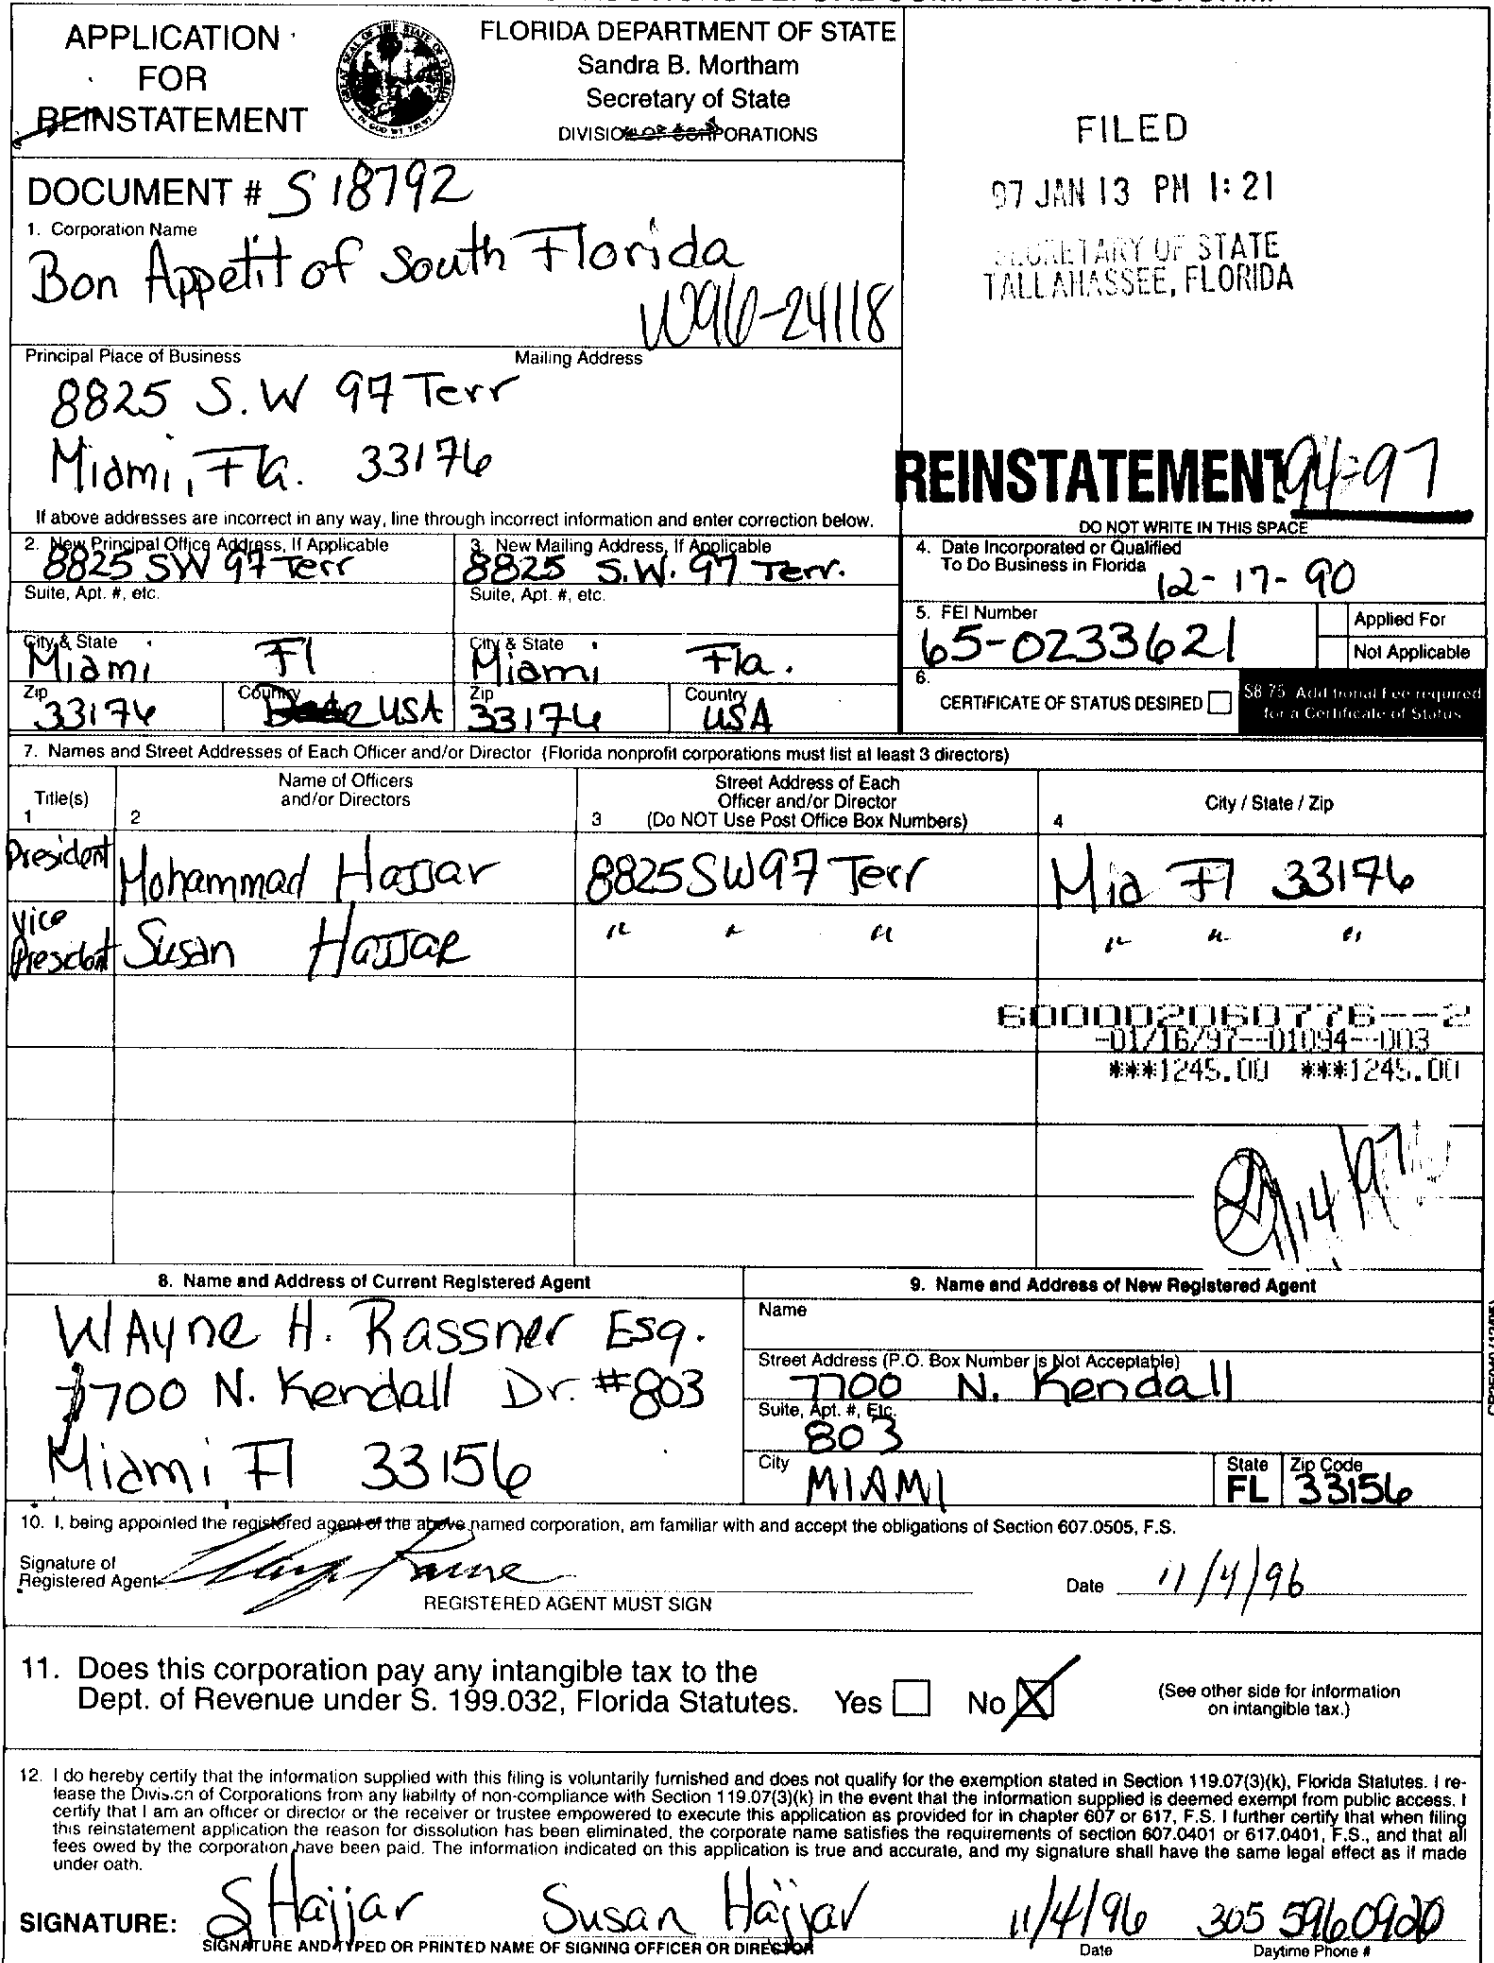 APPLICATION
FOR
REINSTATEMENT
FLORIDA DEPARTMENT OF STATE
Sandra B. Mortham
Secretary of State
DIVISION OF CORPORATIONS
FILED
97 JAN 13 PM 1:21
SECRETARY OF STATE
TALLAHASSEE, FLORIDA
DOCUMENT # S 18792
1. Corporation Name
Bon Appetit of South Florida
W96-24118
Principal Place of Business
Mailing Address
8825 S.W 97 Terr
Miami, Fla. 33176
REINSTATEMENT 94-97
If above addresses are incorrect in any way, line through incorrect information and enter correction below.
DO NOT WRITE IN THIS SPACE
2. New Principal Office Address, If Applicable
8825 SW 97 Terr
3. New Mailing Address, If Applicable
8825 S.W. 97 Terr.
4. Date Incorporated or Qualified
To Do Business in Florida 12-17-90
Suite, Apt. #, etc.
Suite, Apt. #, etc.
5. FEI Number
65-0233621
Applied For
Not Applicable
City & State
Miami Fl
City & State
Miami Fla.
6.
CERTIFICATE OF STATUS DESIRED
$8.75 Additional Fee required
for a Certificate of Status
Zip
33176
Country
USA
Zip
33176
Country
USA
7. Names and Street Addresses of Each Officer and/or Director (Florida nonprofit corporations must list at least 3 directors)
Title(s)
1
Name of Officers
and/or Directors
2
Street Address of Each
Officer and/or Director
3 (Do NOT Use Post Office Box Numbers)
City / State / Zip
4
President Mohammad Hajjar 8825 SW 97 Terr Mia Fl 33176
Vice
President Susan Hajjar " " " " " "
600002060776--2
-01/16/97--01094--003
***1245.00 ***1245.00
8. Name and Address of Current Registered Agent
WAyne H. Rassner Esq.
7700 N. Kendall Dr. #803
Miami Fl 33156
9. Name and Address of New Registered Agent
Name
Street Address (P.O. Box Number is Not Acceptable)
7700 N. Kendall
Suite, Apt. #, Etc.
803
City
MIAMI
State
FL
Zip Code
33156
10. I, being appointed the registered agent of the above named corporation, am familiar with and accept the obligations of Section 607.0505, F.S.
Signature of
Registered Agent
Date 11/4/96
REGISTERED AGENT MUST SIGN
11. Does this corporation pay any intangible tax to the
Dept. of Revenue under S. 199.032, Florida Statutes. Yes No X
(See other side for information
on intangible tax.)
12. I do hereby certify that the information supplied with this filing is voluntarily furnished and does not qualify for the exemption stated in Section 119.07(3)(k), Florida Statutes. I re-
lease the Division of Corporations from any liability of non-compliance with Section 119.07(3)(k) in the event that the information supplied is deemed exempt from public access. I
certify that I am an officer or director or the receiver or trustee empowered to execute this application as provided for in chapter 607 or 617, F.S. I further certify that when filing
this reinstatement application the reason for dissolution has been eliminated, the corporate name satisfies the requirements of section 607.0401 or 617.0401, F.S., and that all
fees owed by the corporation have been paid. The information indicated on this application is true and accurate, and my signature shall have the same legal effect as if made
under oath.
SIGNATURE: S Hajjar Susan Hajjar 11/4/96 305 5960920
SIGNATURE AND TYPED OR PRINTED NAME OF SIGNING OFFICER OR DIRECTOR
Date
Daytime Phone #